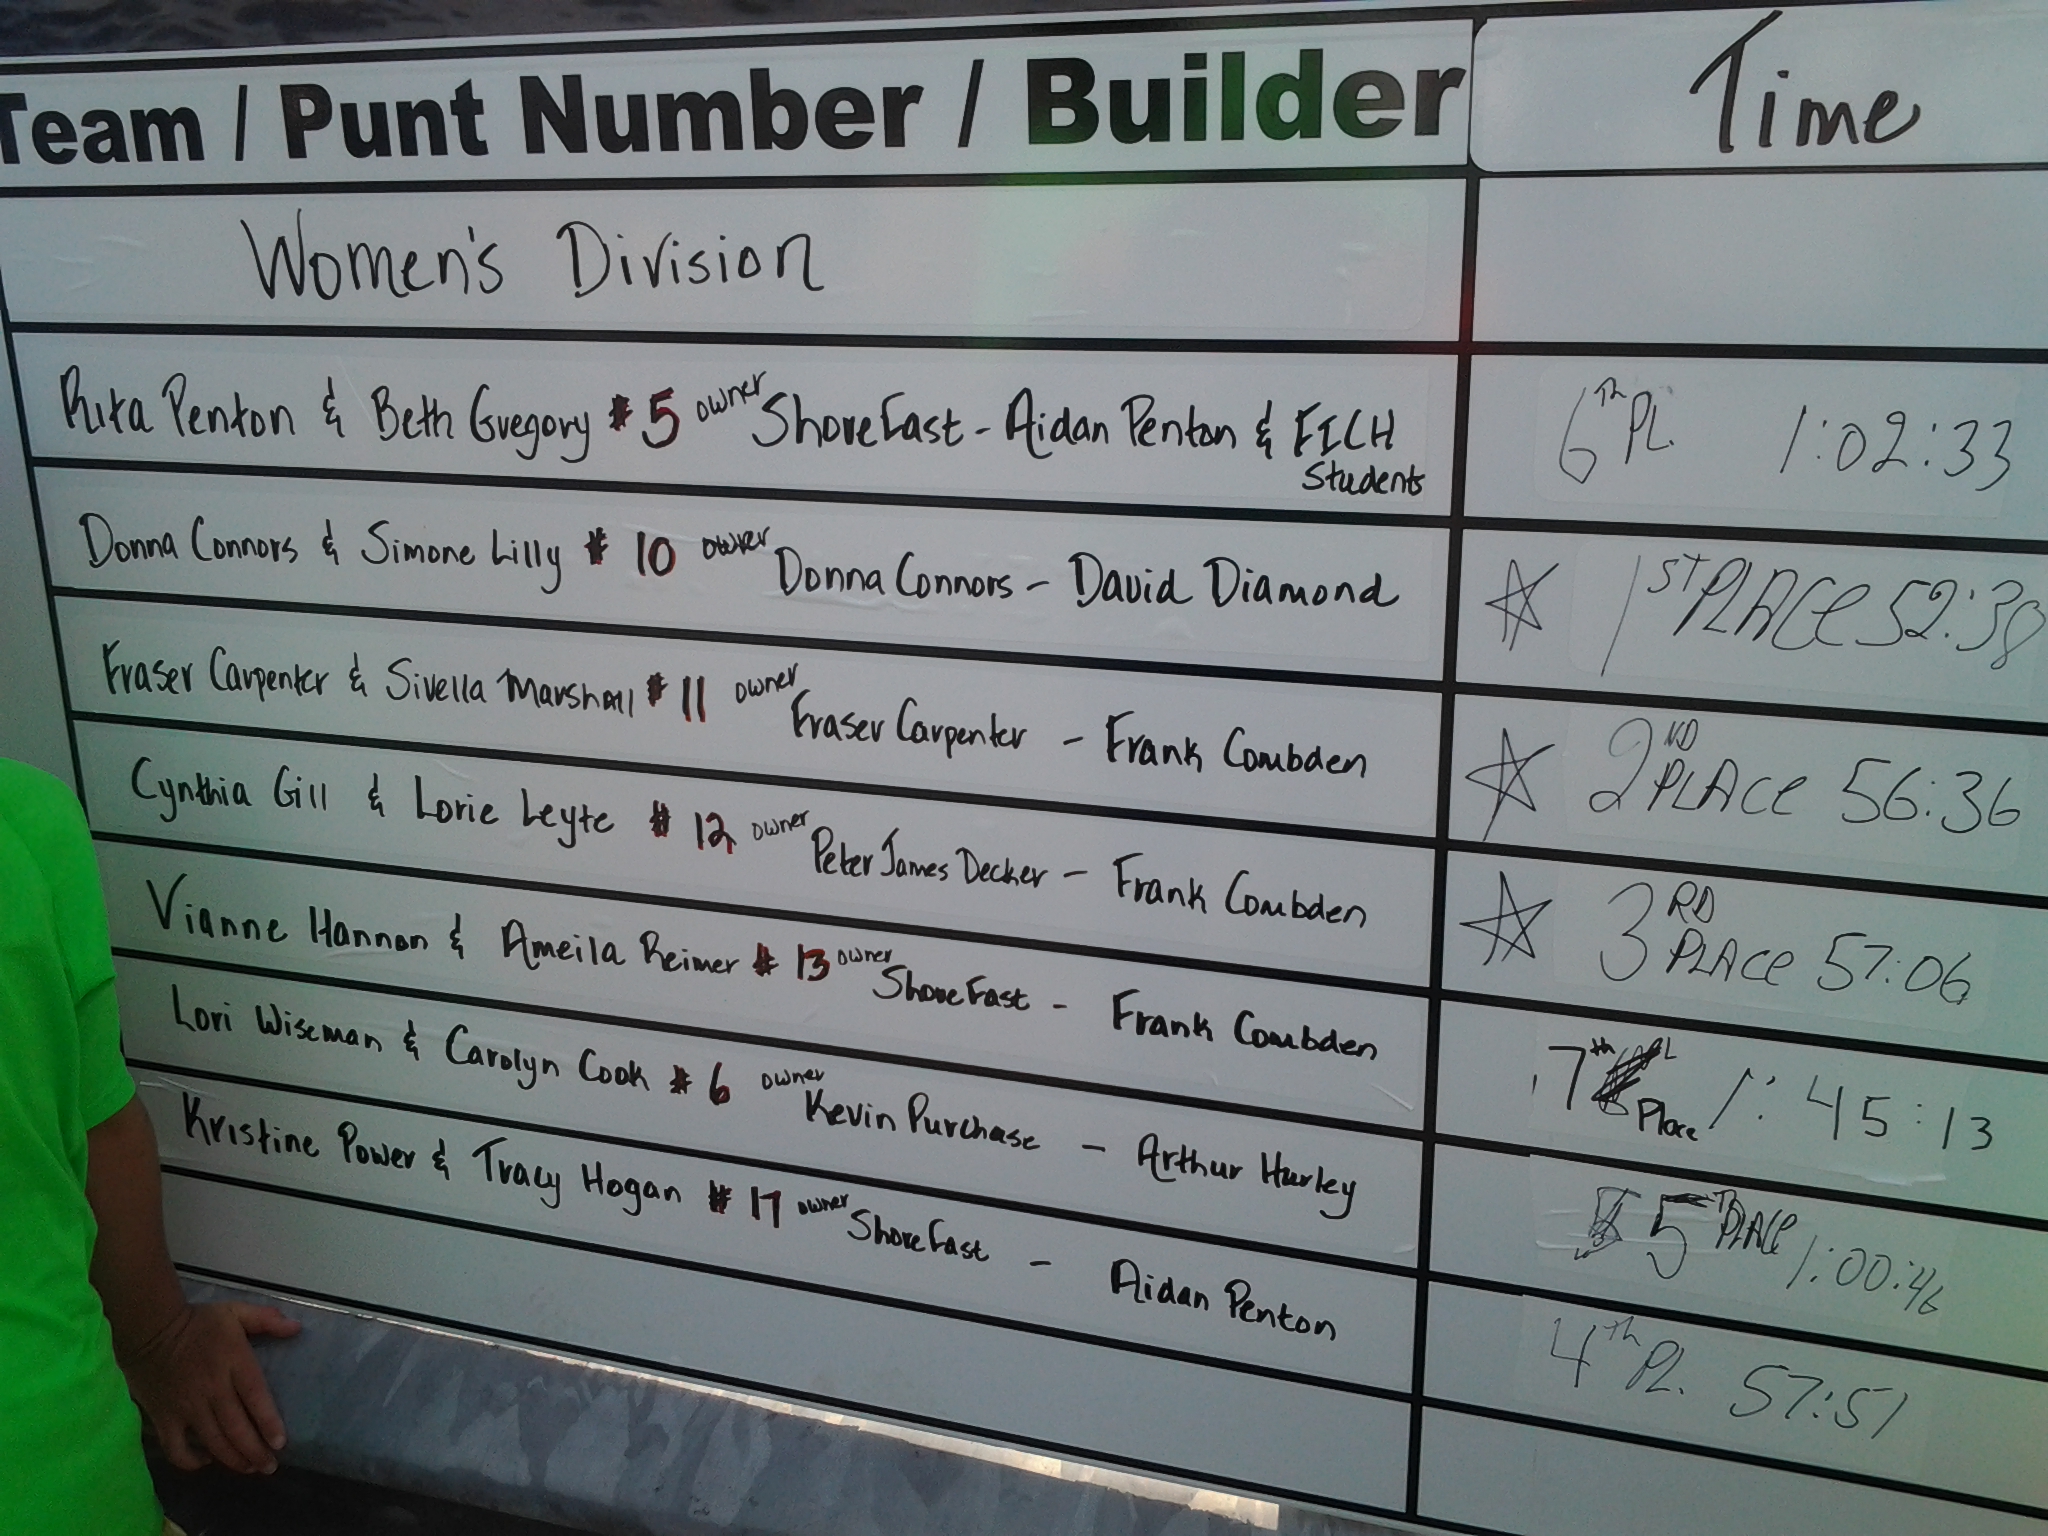 Team / Punt Number / Builder Time
Women's Division
Rita Penton & Beth Gregory # 5 owner ShoreFast - Aidan Penton & FICH 6th PL. 1:02:33
Students
Donna Connors & Simone Lilly # 10 owner Donna Connors - David Diamond ☆ 1ST PLACE 52:38
Fraser Carpenter & Sivella Marshall # 11 owner Fraser Carpenter - Frank Combden ☆ 2ND PLACE 56:36
Cynthia Gill & Lorie Leyte # 12 owner Peter James Decker - Frank Combden ☆ 3RD PLACE 57:06
Vianne Hannon & Ameila Reimer # 13 owner ShoreFast - Frank Combden 7th Place 1:45:13
Lori Wiseman & Carolyn Cook # 6 owner Kevin Purchase - Arthur Hurley 5TH PLACE 1:00:46
Kristine Power & Tracy Hogan # 17 owner ShoreFast - Aidan Penton 4th PL. 57:51